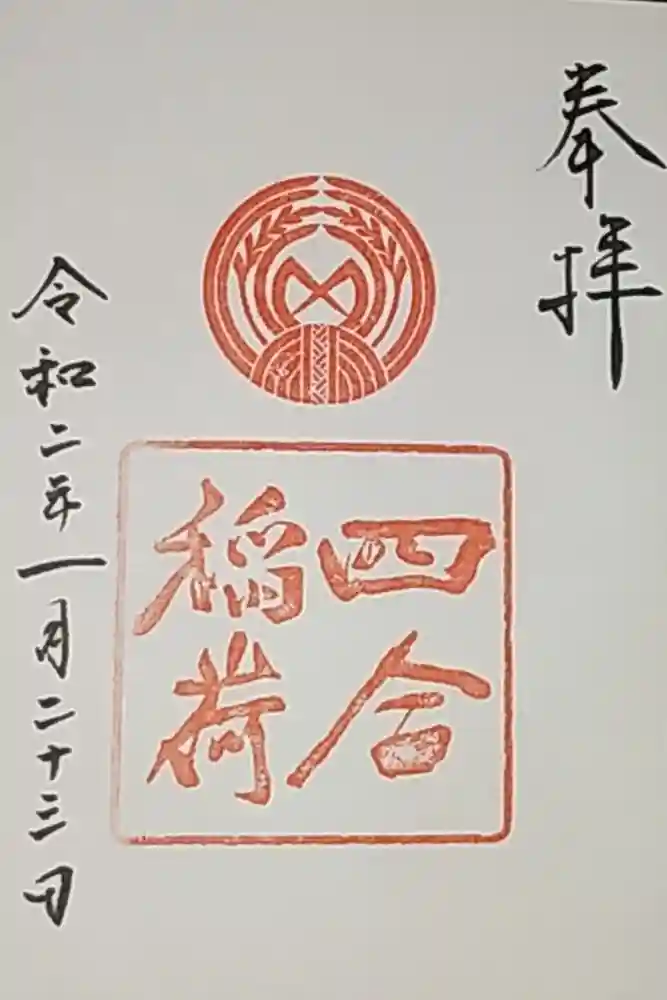 奉拝
四合
稲荷
令和二年一月二十三日